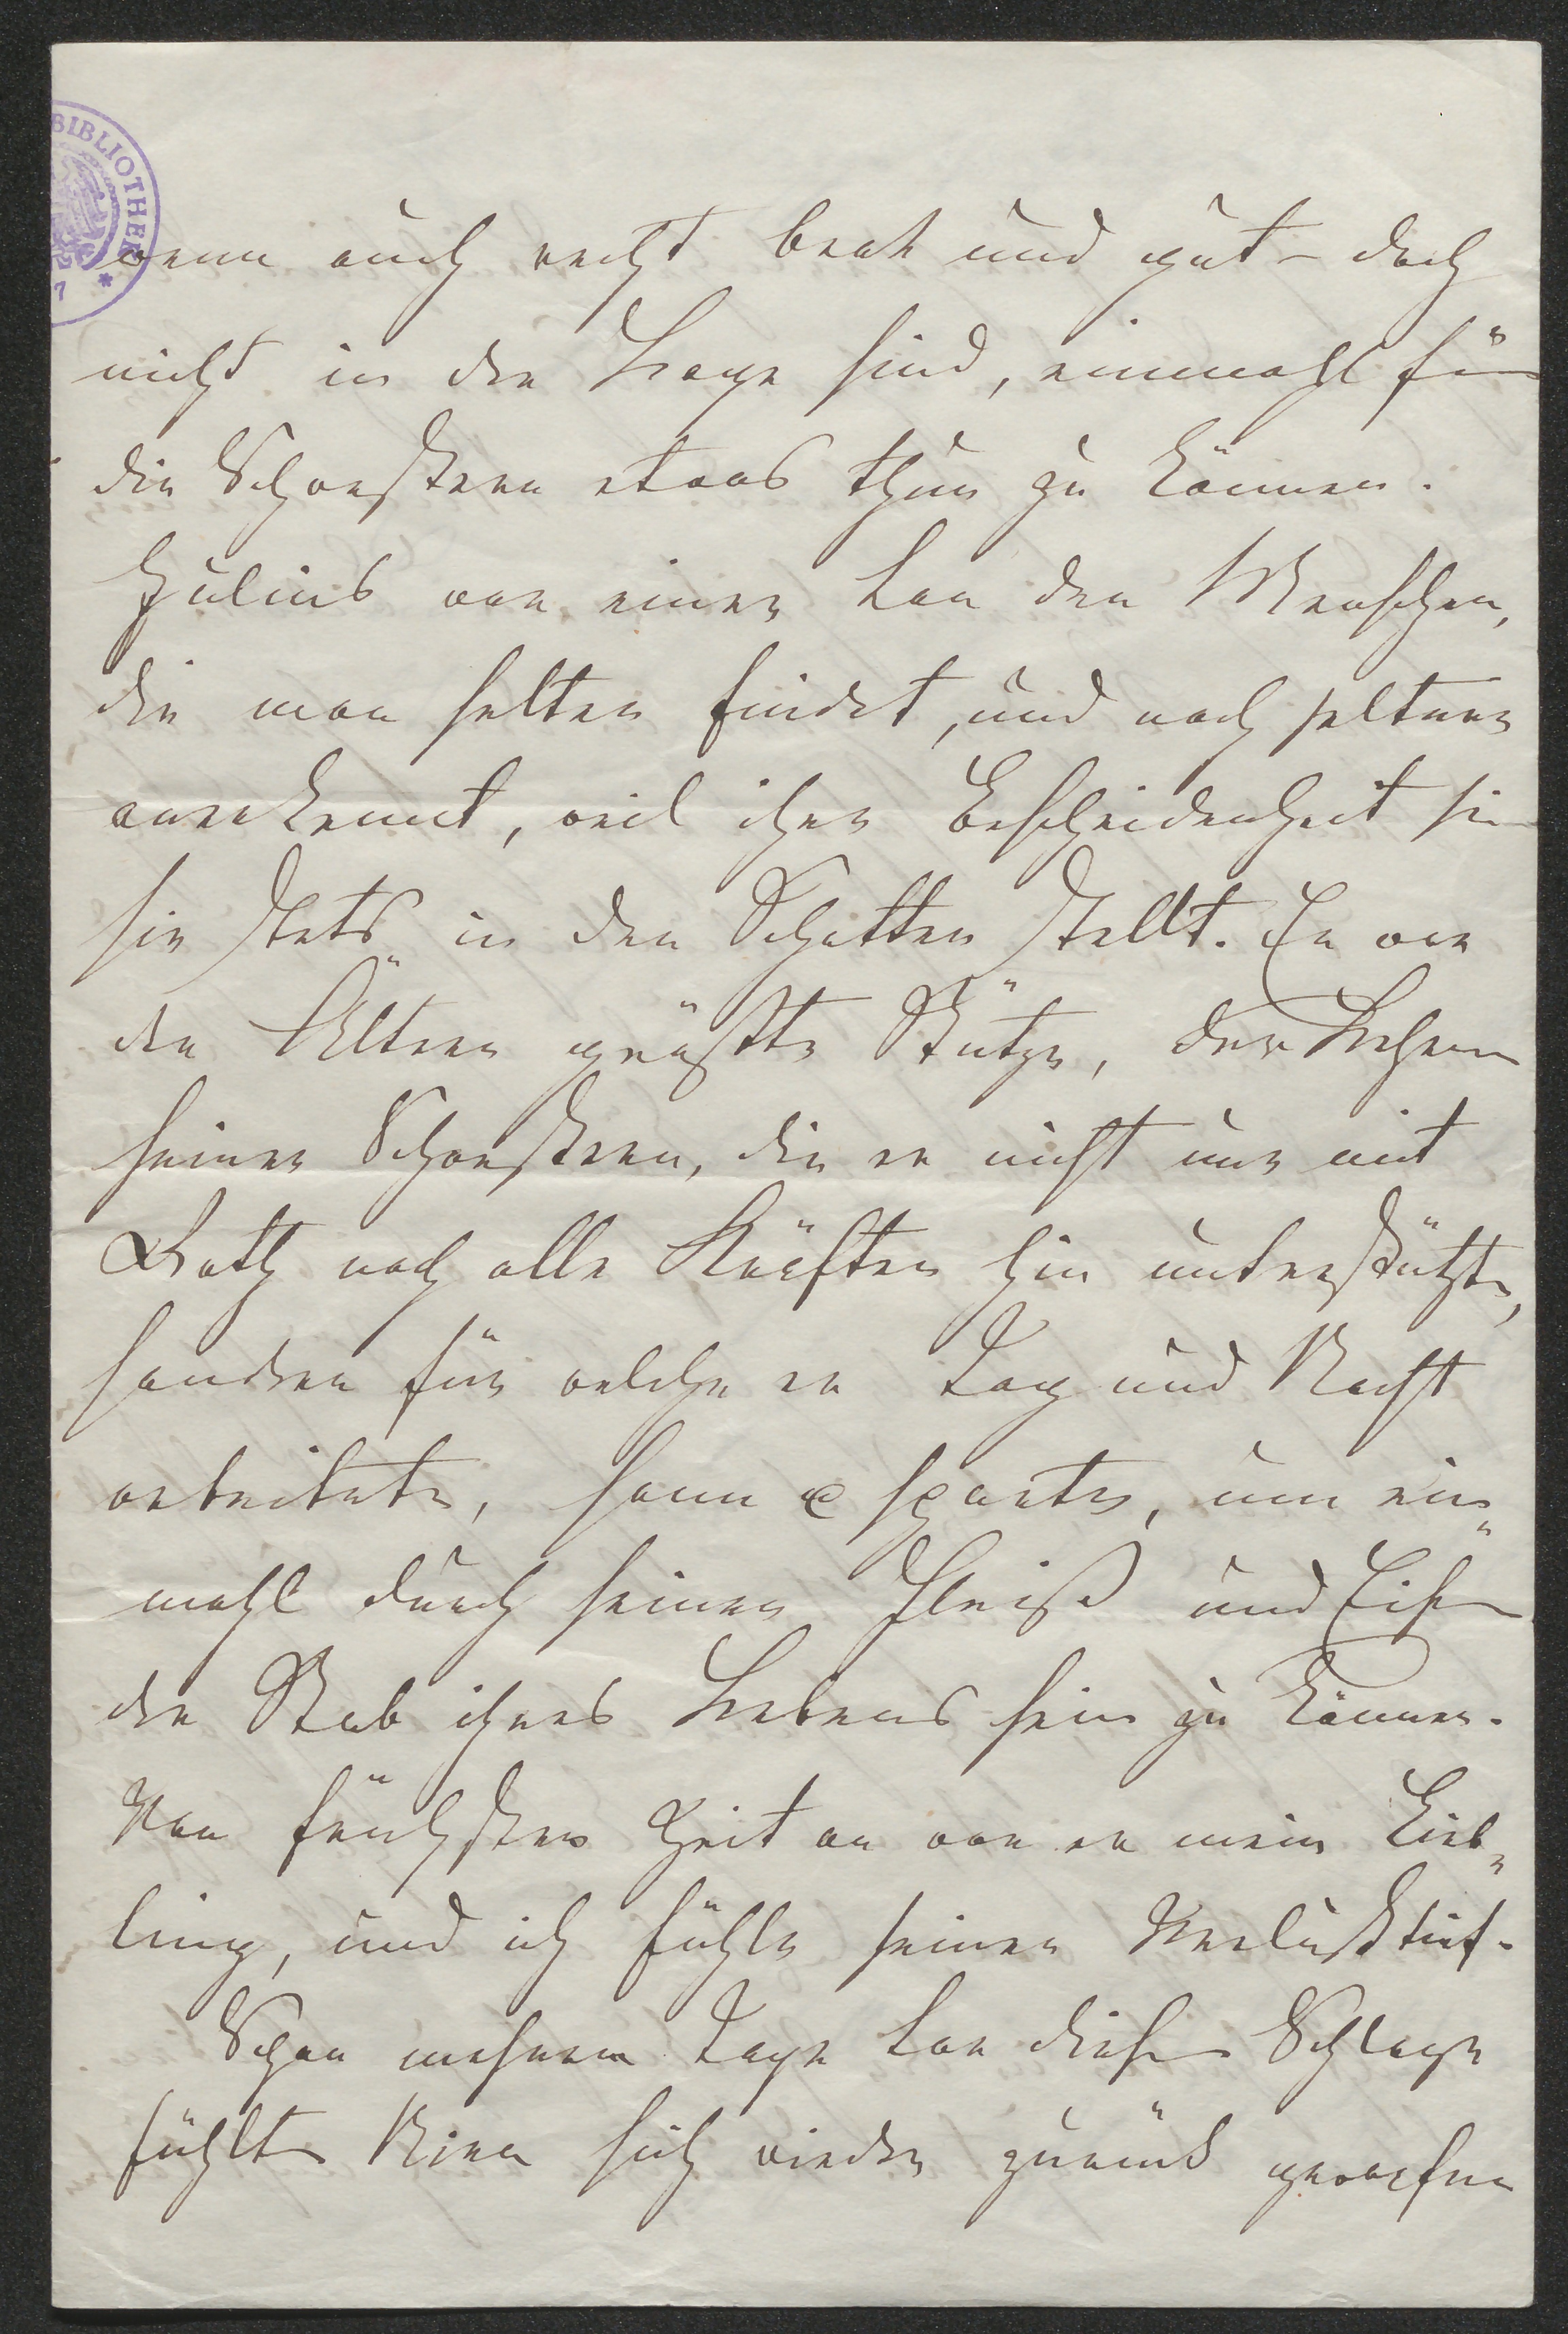 BIBLIOTHEK
wenn auch recht brav und gut – doch
nicht in der Lage sind, einmahl für
die Schwestern etwas thun zu können.
Julius war einer von den Menschen,
die man selten findet, und noch seltner
anerkennt, weil ihre Bescheidenheit sie
sie stets in den Schatten stellt. Er war
der Ältern größte Stütze, der
seiner Schwestern, die er nicht nur mit
Rath nach alle Kräften hin unterstützte,
sondern für welche er Tag und Nacht
arbeitete, sann & sparte, um ein„
mahl durch seinen Fleiß und Eifer
der Stab ihres Lebens sein zu können.
Von frühster Zeit an war er mein Lieb„
ling, und ich fühle seinen Verlust tief.
Schon mehrere Tage vor diesem Schlage
fühlte sich wieder zurück geworfen